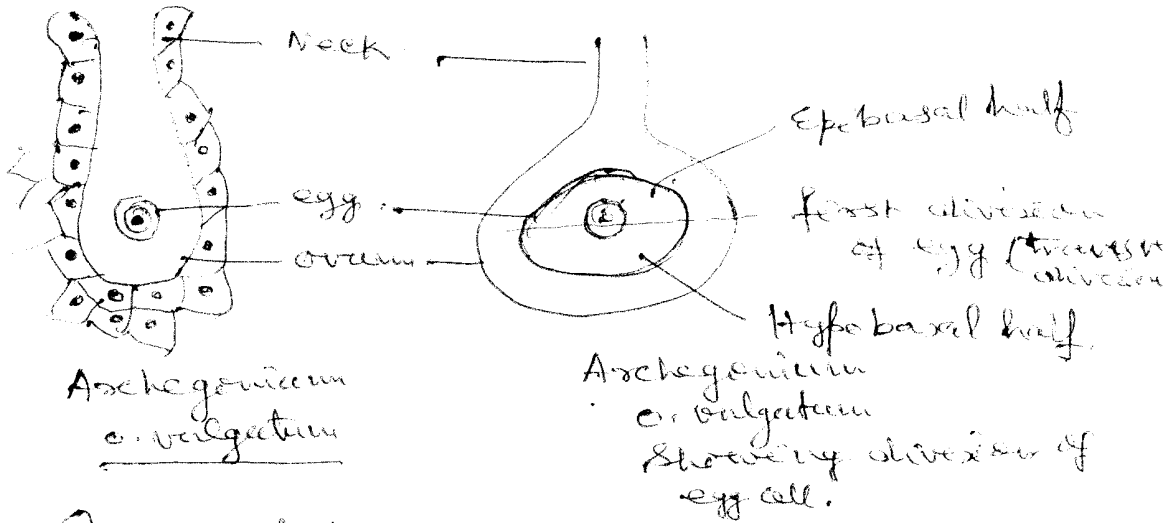 Neck
Epibasal half
egg
first division
of egg (transv
division
ovum
Hypobasal half.
Archegonium
o. vulgatum
Archegonium
o. vulgatum
Showing division of
egg cell.